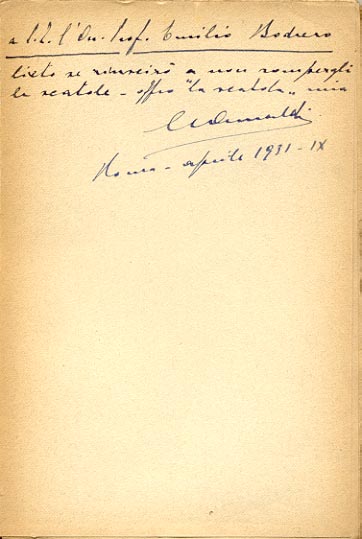 a S.E. l'On. Prof. Emilio Bodrero
lieto se riuscirò a non rompergli
le scatole - offro "la scatola„ mia
Roma - aprile 1931 - IX